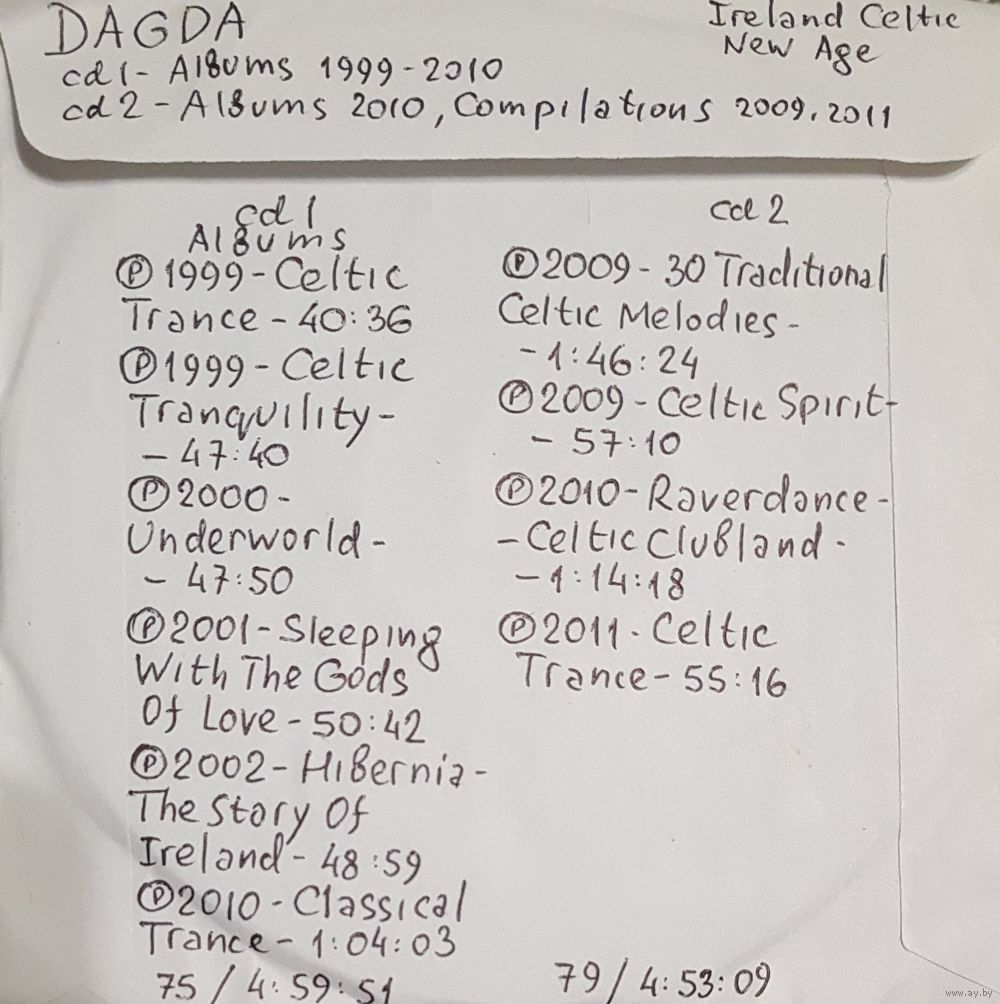 DAGDA
Ireland Celtic
New Age
cd1- Albums 1999-2010
cd2 - Albums 2010, Compilations 2009, 2011
cd1
Albums
Ⓟ1999-Celtic
Trance - 40:36
Ⓟ1999-Celtic
Tranquility-
- 47:40
Ⓟ2000-
Underworld-
- 47:50
Ⓟ2001-Sleeping
With The Gods
Of Love-50:42
Ⓟ2002-Hibernia-
The Story Of
Ireland- 48:59
Ⓟ2010-Classical
Trance- 1:04:03
75 / 4:59:51
cd2
Ⓟ2009-30 Traditional
Celtic Melodies-
-1:46:24
Ⓟ2009-Celtic Spirit-
- 57:10
Ⓟ2010-Raverdance-
-Celtic Clubland-
-1:14:18
Ⓟ2011-Celtic
Trance- 55:16
79 / 4:53:09
www.ay.by